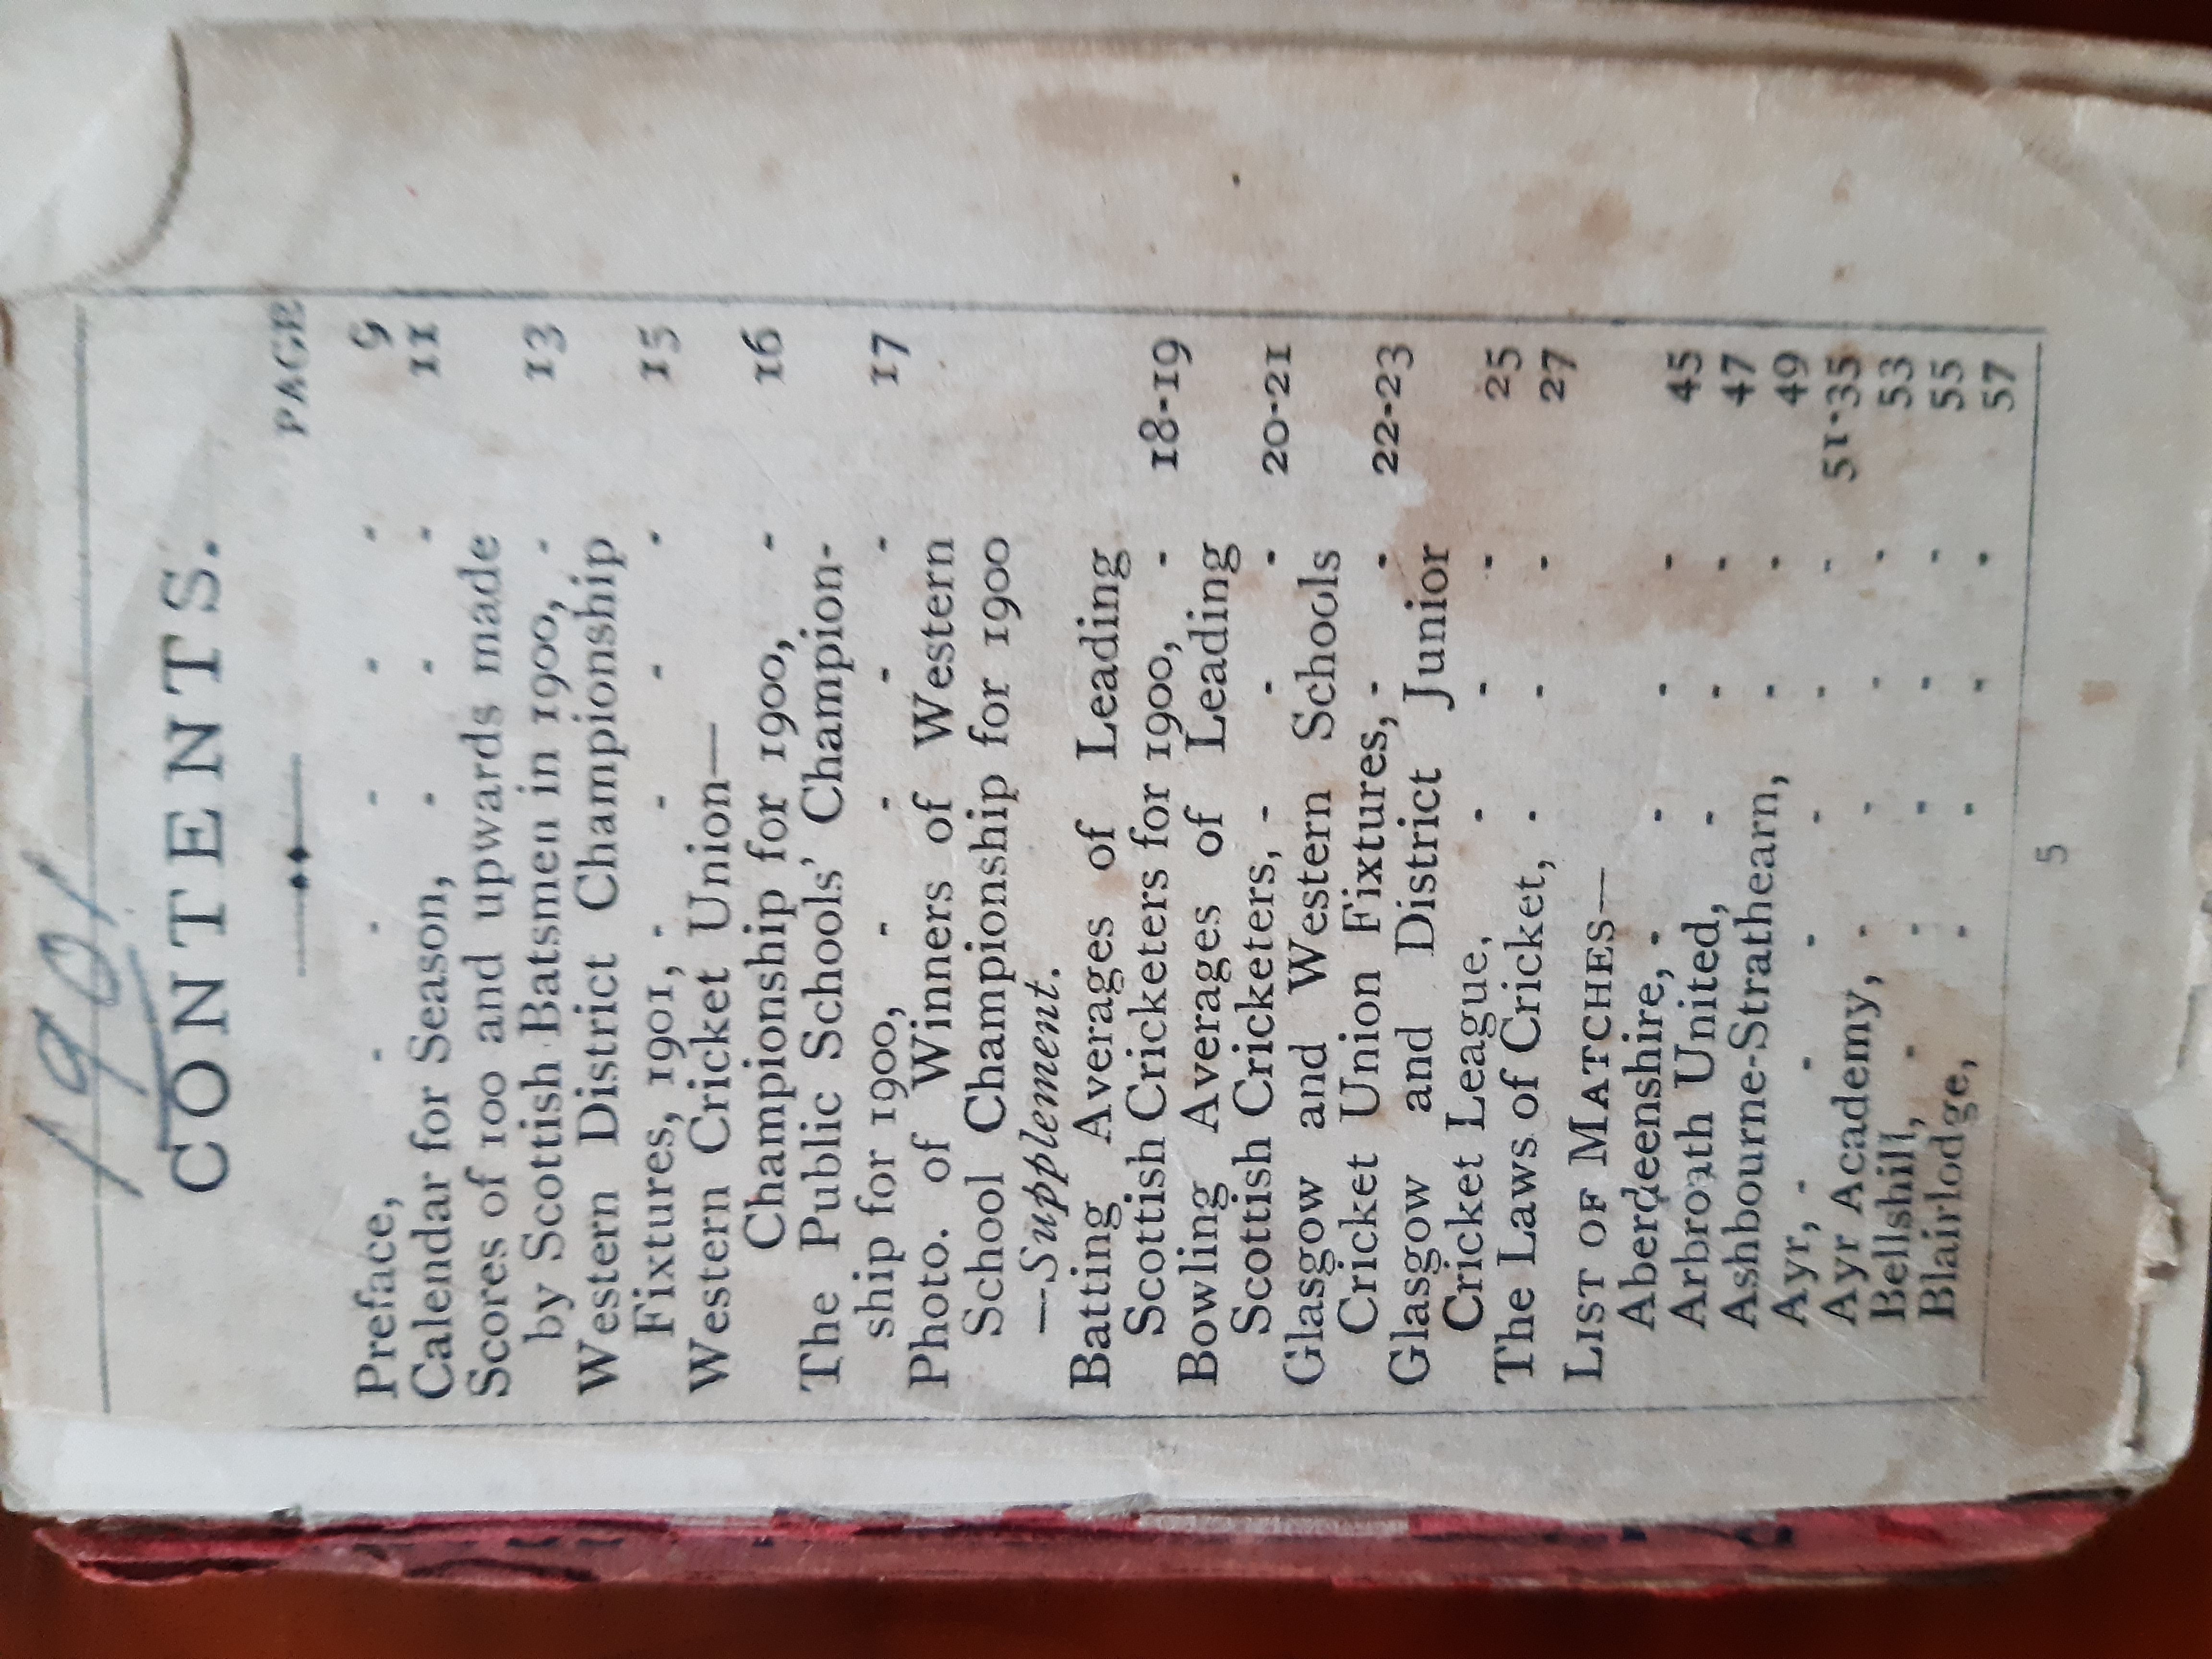 1901
CONTENTS.
PAGE
Preface, - - - - - 9
Calendar for Season, - - - 11
Scores of 100 and upwards made
by Scottish Batsmen in 1900, - 13
Western District Championship
Fixtures, 1901, - - - - 15
Western Cricket Union—
Championship for 1900, - 16
The Public Schools' Champion-
ship for 1900, - - - - 17
Photo. of Winners of Western
School Championship for 1900
—Supplement.
Batting Averages of Leading
Scottish Cricketers for 1900, - 18-19
Bowling Averages of Leading
Scottish Cricketers, - - - 20-21
Glasgow and Western Schools
Cricket Union Fixtures, - - 22-23
Glasgow and District Junior
Cricket League, - - - 25
The Laws of Cricket, - - - 27
LIST OF MATCHES—
Aberdeenshire, - - - - 45
Arbroath United, - - - 47
Ashbourne-Strathearn, - - 49
Ayr, - - - - - - 51-35
Ayr Academy, - - - - 53
Bellshill, - - - - - 55
Blairlodge, - - - - 57
5